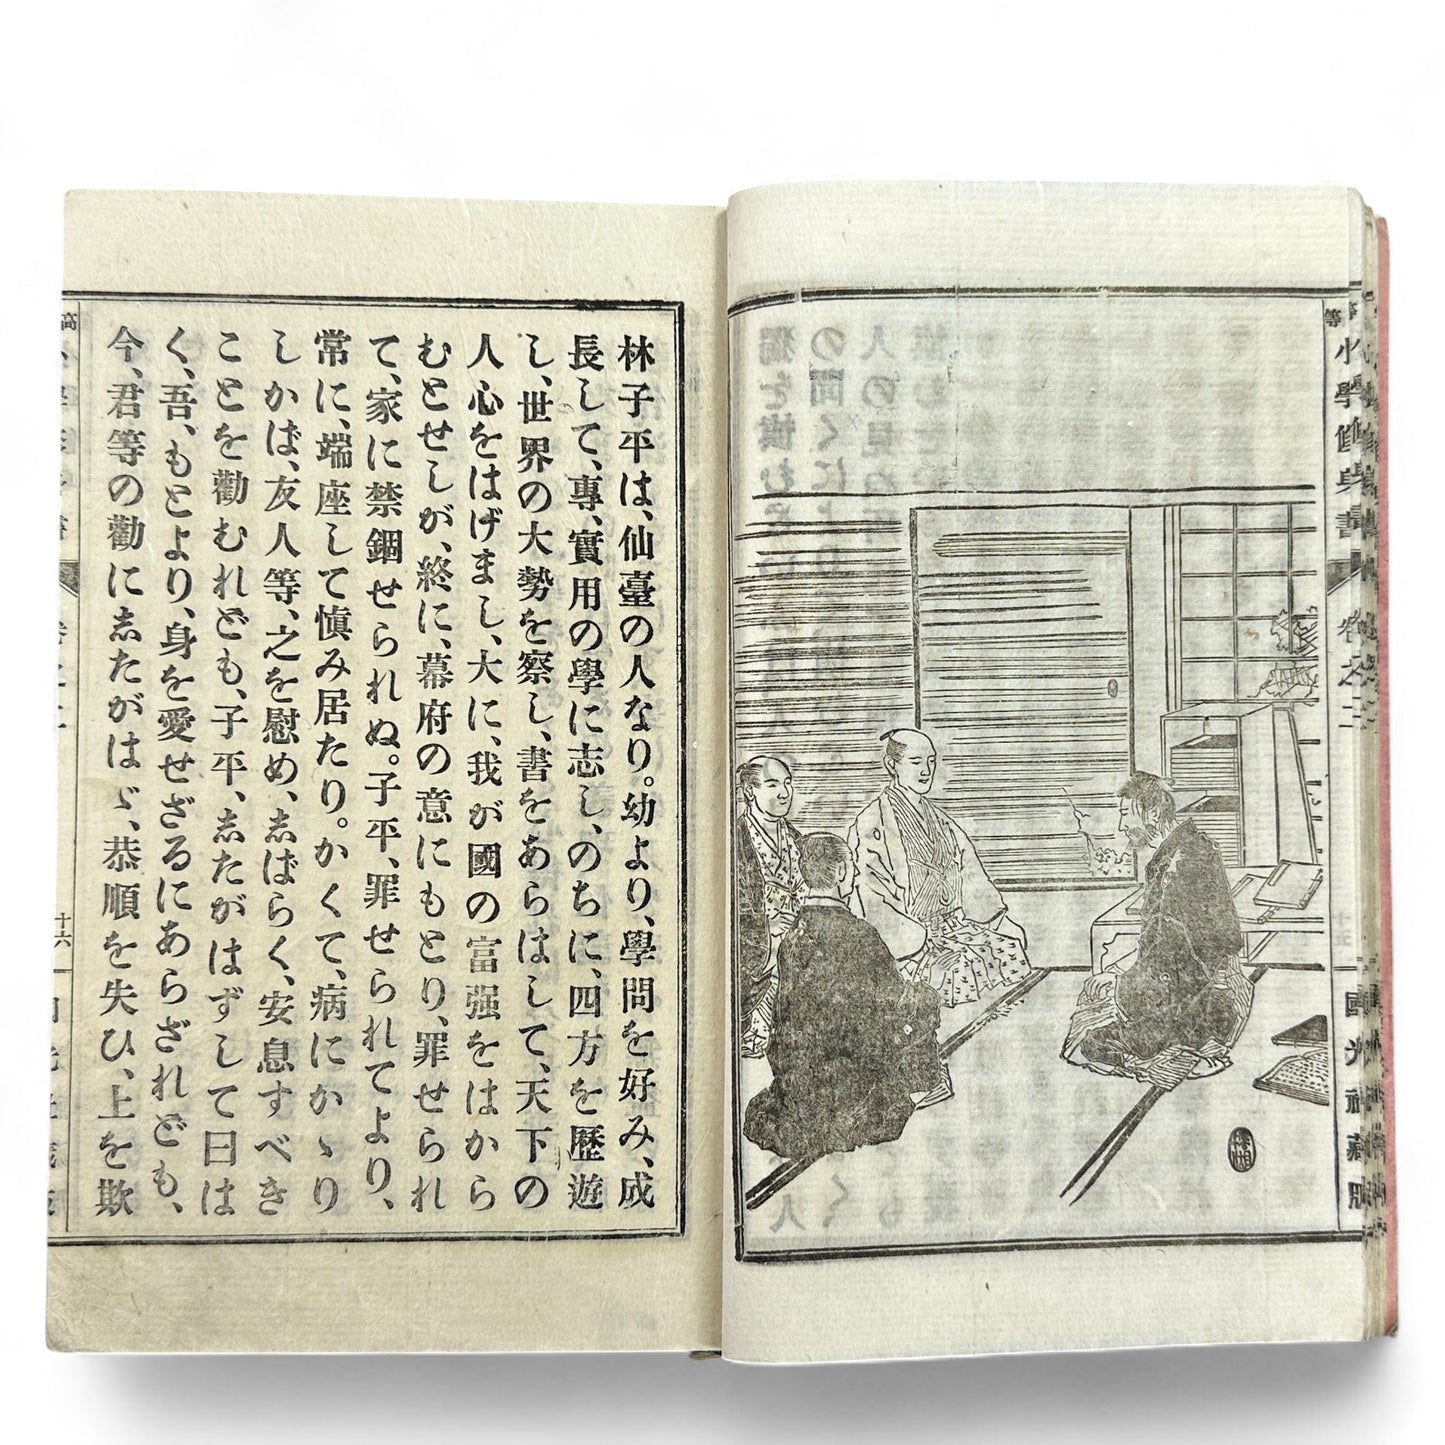 小學修身書
卷之二
國光社藏版
林子平は、仙臺の人なり。幼より、學問を好み、成
長して、專、實用の學に志し、のちに、四方を歷遊
し、世界の大勢を察し、書をあらはして、天下の
人心をはげまし、大に、我が國の富强をはから
むとせしが、終に、幕府の意にもとり、罪せられ
て、家に禁錮せられぬ。子平、罪せられてより、
常に、端座して愼み居たり。かくて、病にかゝり
しかば、友人等、之を慰め、志ばらく、安息すべき
ことを勸むれども、子平、志たがはずして曰は
く、吾、もとより、身を愛せざるにあらざれども、
今、君等の勸に志たがはゞ、恭順を失ひ、上を欺
十六